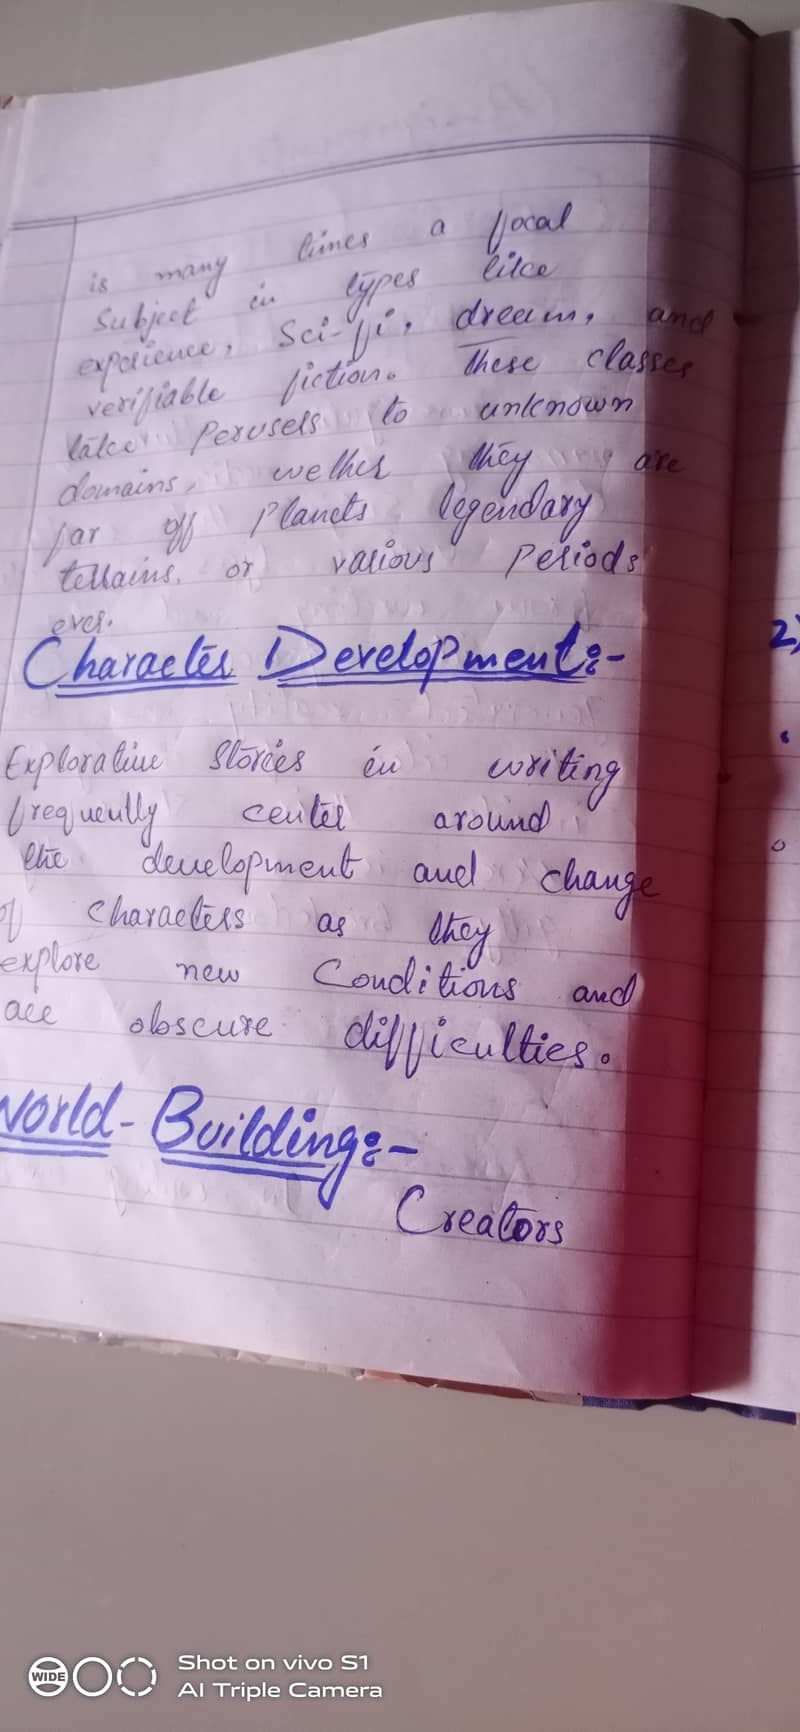 is many times a focal
Subject in types like
experience, Sci-fi, dream, and
verifiable fiction. These classes
take Perusers to unknown
domains, wether they are
far off Planets legendary
terrains, or various Periods
ever.
Character Development:-
Explorative Stories in writing
frequently center around
the development and change
of characters as they
explore new Conditions and
ace obscure difficulties.
World-Building:-
Creators
2)
WIDE
Shot on vivo S1
AI Triple Camera